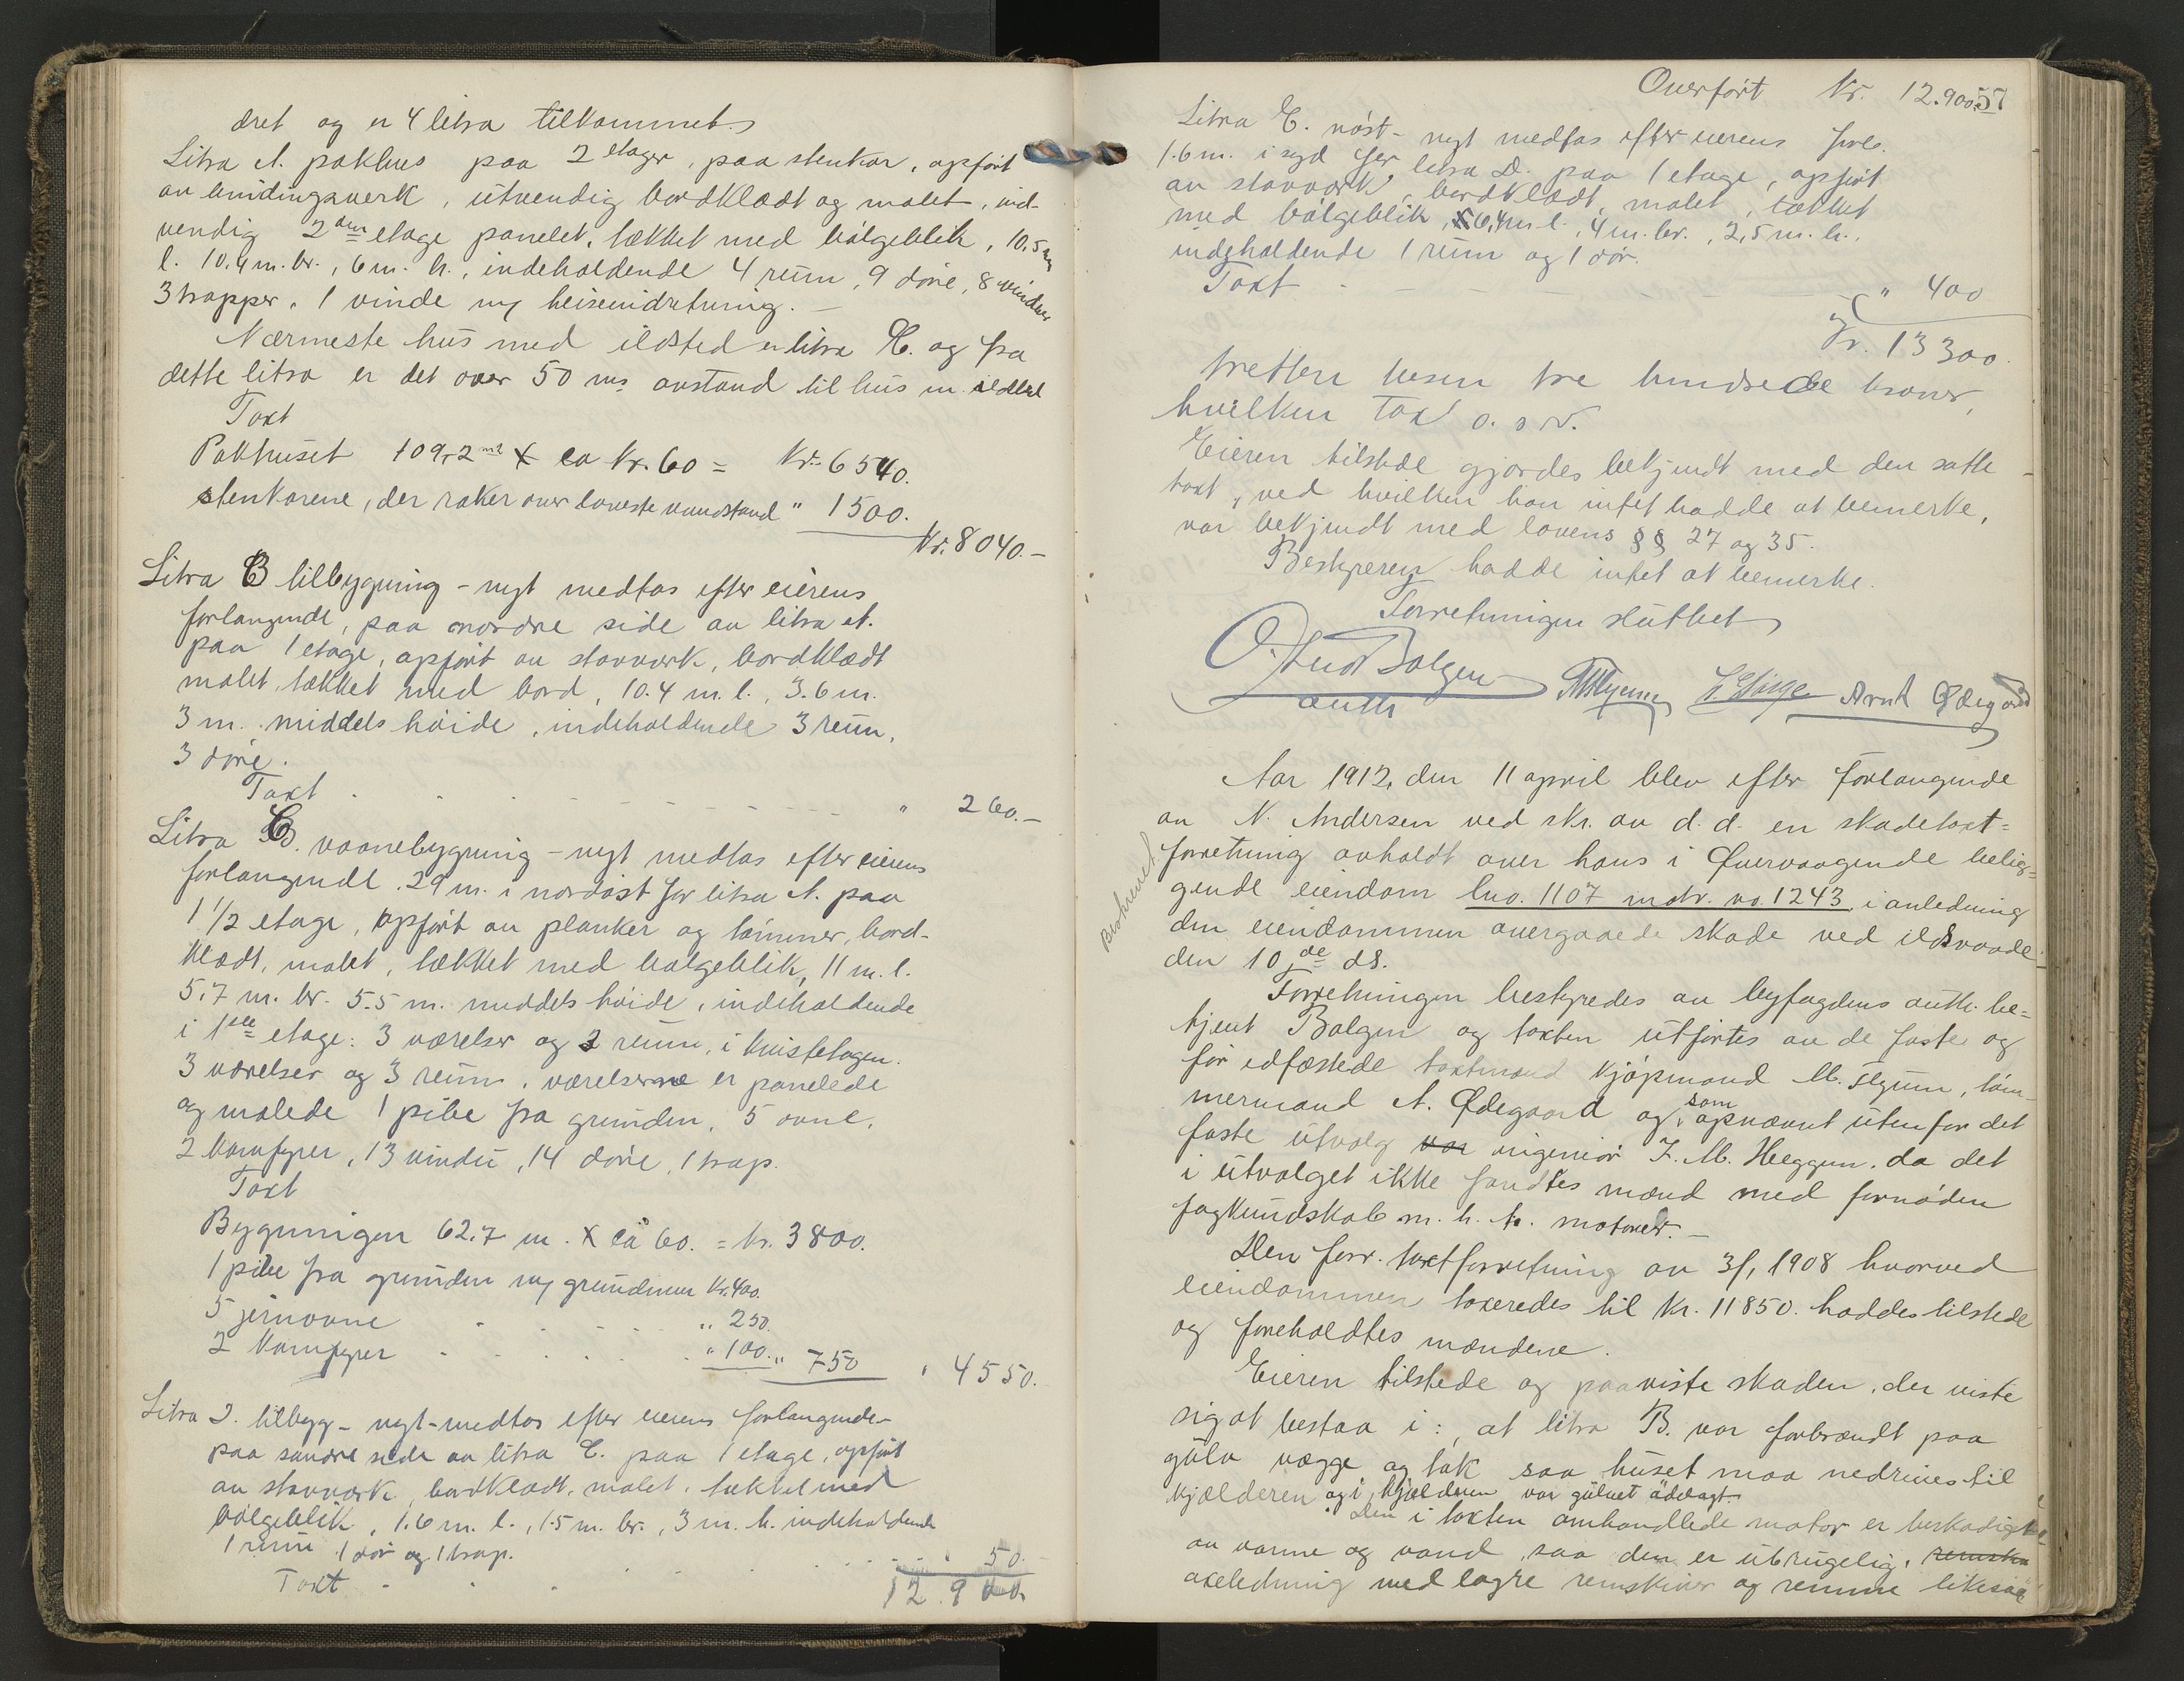 dret og er 4 litra tilkommet.
Litra A. pakhus paa 2 etager, paa stenkar, opført
av bindingsverk, utvendig bordklædt og malet, ind-
vendig 2den etage panelet, tækket med bølgeblik, 10,5 m
l. 10.4 m. br., 6 m. h., indeholdende 4 rum, 9 døre, 8 vinduer
3 trapper, 1 vinde m/ heiseindretning. –
Nærmeste hus med ildsted er litra C. og fra
dette litra er det over 50 ms avstand til hus m. ildsted
Taxt
Pakhuset 109,2 m2 x ca Kr. 60 = Kr. 6540.
stenkarene, der raker over laveste vandstand " 1500.
Kr. 8040.–
Litra B tilbygning – nyt medtas efter eierens
forlangende, paa nordre side av litra A.
paa 1 etage, opført av stavverk, bordklædt
malet, tækket med bord, 10.4 m. l., 3.6 m.
3 m. middels høide, indeholdende 3 rum,
3 døre.
Taxt " 260.–
Litra C. vaanebygning – nyt medtas efter eierens
forlangende. 29 m. i nordøst for litra A. paa
1 1/2 etage, opført av planker og tømmer, bord-
klædt, malet, tækket med bølgeblik, 11 m. l.
5.7 m. br. 5.5 m. middels høide, indeholdende
i 1ste etage: 3 værelser og 2 rum, i kvistetagen
3 værelser og 3 rum, værelserne er panelede
og malede 1 pibe fra grunden, 5 ovne,
2 komfyrer, 13 vindu, 14 døre, 1 trap.
Taxt
Bygningen 62.7 m. x ca 60. = kr. 3800.
1 pibe fra grunden m/ grundmur Kr. 400.
5 jernovne " 250.
2 Komfyrer " 100. " 750 " 4550.
Litra D. tilbyg – nyt – medtas efter eierens forlangende –
paa søndre side av litra C. paa 1 etage, opført
av stavverk, bordklædt, malet, tækket med
bølgeblik, 1.6 m. l., 1.5 m. br., 3 m. h. indeholdende
1 rum 1 dør og 1 trap.
Taxt " 50.
12.900.
Overført Kr. 12.900. 57
Litra E. nøst – nyt medtas efter eierens forl.
1.6 m. i syd for litra D. paa 1 etage, opført
av stavverk, bordklædt, malet, tækket
med bølgeblik, 6,4 m l., 4 m. br., 2,5 m. h.,
indeholdende 1 rum og 1 dør.
Taxt " 400
Kr. 13300.
tretten tusen tre hundrede kroner,
hvilken Taxt o. s. v.
Eieren tilstede gjordes bekjendt med den satte
taxt, ved hvilken han intet hadde at bemerke,
var bekjendt med lovens §§ 27 og 35.
Bestyreren hadde intet at bemerke.
Forretningen sluttet
Bolgen
auth Arnt Ødegaard
Aar 1912, den 11 april blev efter forlangende
av N. Andersen ved skr. av d. d. en skadetaxt=
forretning avholdt over hans i Øvervaagende belig=
gende eiendom lno. 1107 matr. no. 1243 i anledning
den eiendommen overgaaede skade ved ildsvaade
den 10de ds.
Forretningen bestyredes av byfogdens auth. be=
tjent Bolgen og taxten utførtes av de faste og
før edfæstede taxtmænd kjøpmand M. Flyum, tøm-
mermand A. Ødegaard og som opnævnt utenfor det
faste utvalg ingeniør J. M. Heggem. da det
i utvalget ikke fandtes mænd med fornøden
fagkundskab m. h. t. motorer. –
Den forr. taxtforretning av 3/1 1908 hvorved
eiendommen taxeredes til Kr. 11850. haddes tilstede
og foreholdtes mændene.
Eieren tilstede og paaviste skaden, der viste
sig at bestaa i: at litra B. var forbrændt paa
gulv vægge og tak saa huset maa nedrives til
kjælderen og i kjælderen var gulvet ødelagt.
Den i taxten omhandlede motor er beskadiget
av varme og vand, saa den er ubrugelig,
axeledning med lagre remskiver og remme likesaa